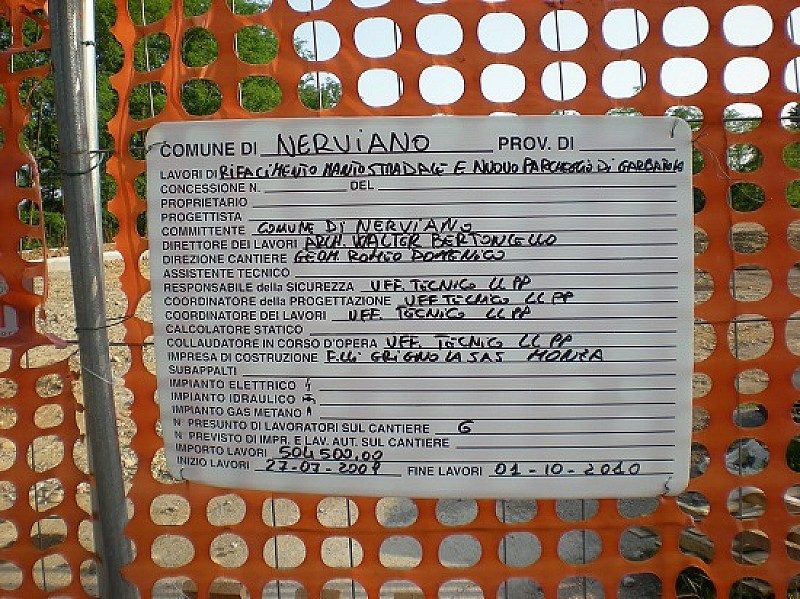 COMUNE DI NERVIANO PROV. DI
LAVORI DI RIFACIMENTO MANTO STRADALE E NUOVO PARCHEGGIO DI GARBATOLA
CONCESSIONE N. DEL
PROPRIETARIO
PROGETTISTA
COMMITTENTE COMUNE DI NERVIANO
DIRETTORE DEI LAVORI ARCH. WALTER BERTONCELLO
DIREZIONE CANTIERE GEOM. ROMEO DOMENICO
ASSISTENTE TECNICO
RESPONSABILE della SICUREZZA UFF. TECNICO LL PP
COORDINATORE della PROGETTAZIONE UFF TECNICO LL PP
COORDINATORE DEI LAVORI UFF. TECNICO LL PP
CALCOLATORE STATICO
COLLAUDATORE IN CORSO D'OPERA UFF. TECNICO LL PP
IMPRESA DI COSTRUZIONE F.lli GRIGNOLA SAS MONZA
SUBAPPALTI
IMPIANTO ELETTRICO
IMPIANTO IDRAULICO
IMPIANTO GAS METANO
N° PRESUNTO DI LAVORATORI SUL CANTIERE 6
N° PREVISTO DI IMPR. E LAV. AUT. SUL CANTIERE
IMPORTO LAVORI 504500,00
INIZIO LAVORI 27-07-2009 FINE LAVORI 01-10-2010